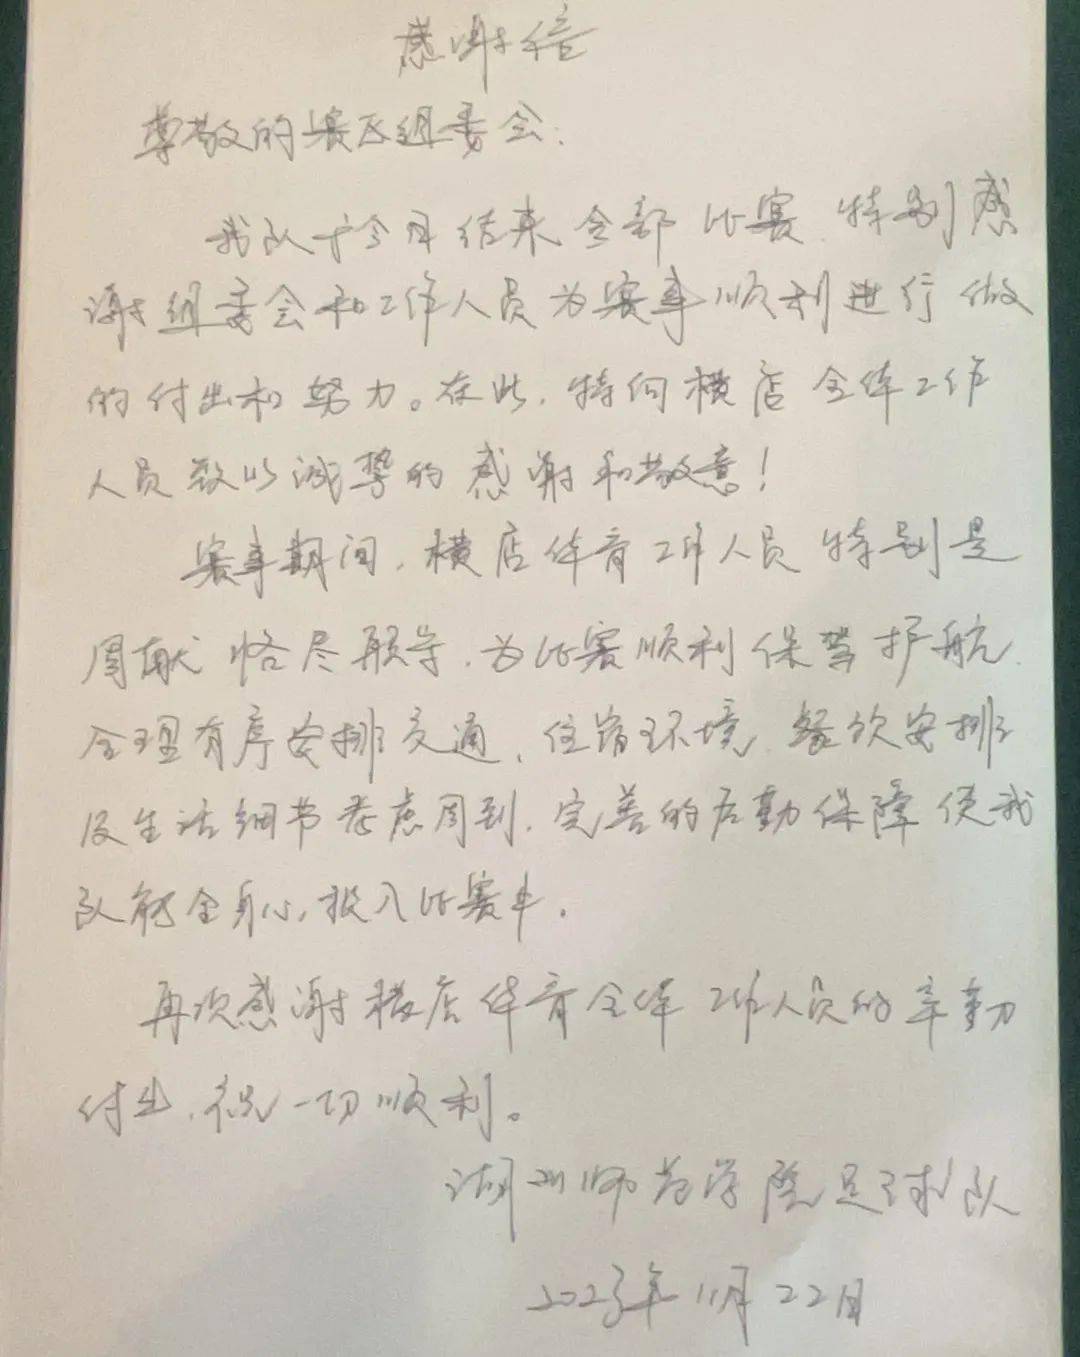 感谢信
尊敬的赛区组委会:
我队于今日结束全部比赛,特别感
谢组委会和工作人员为赛事顺利进行做
的付出和努力。在此,特向横店全体工作
人员致以诚挚的感谢和敬意!
赛事期间,横店体育工作人员特别是
周献恪尽职守,为比赛顺利保驾护航,
合理有序安排交通,住宿环境,餐饮安排
及生活细节考虑周到,完善的后勤保障使我
队能全身心投入比赛中。
再次感谢横店体育全体工作人员的辛勤
付出,祝一切顺利。
湖州师范学院足球队
2023年11月22日